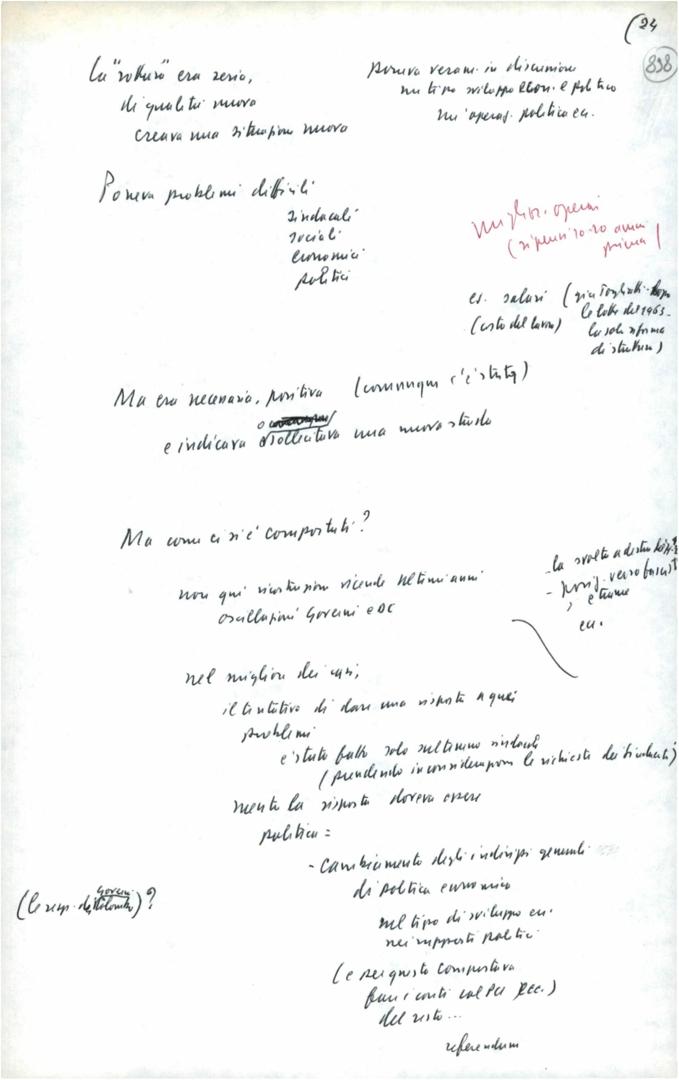 (24
898
La "rottura" era seria,
di qualità nuova
creava una situazione nuova
poneva veram. in discussione
un tipo sviluppo econ. e politico
un'operaz. politica ecc.
Poneva problemi difficili
sindacali
sociali
economici
politici
miglior. operai
(si pensi 10-20 anni
prima)
es. salari (già Togliatti dopo
(costo del lavoro) le lotte del 1963.
la sola riforma
di struttura)
Ma era necessaria, positiva (comunque c'è stata)
e indicava o sollecitava una nuova strada
Ma come ci si è comportati?
non qui ricostruzione vicende ultimi anni
oscillazioni Governi e DC
- la svolta a destra
- verso fascisti
e trame
ecc.
nel migliore dei casi,
il tentativo di dare una risposta a quei
problemi
è stato fatto solo sul terreno sindacale
(prendendo in considerazione le richieste dei Sindacati)
mentre la risposta doveva essere
politica =
- cambiamento degli indirizzi generali
di politica economica
sul tipo di sviluppo ec.
nei rapporti politici
(le resp. dei Governi Colombo)?
(e per questo comportava
fare i conti col PCI ecc.)
del resto...
referendum